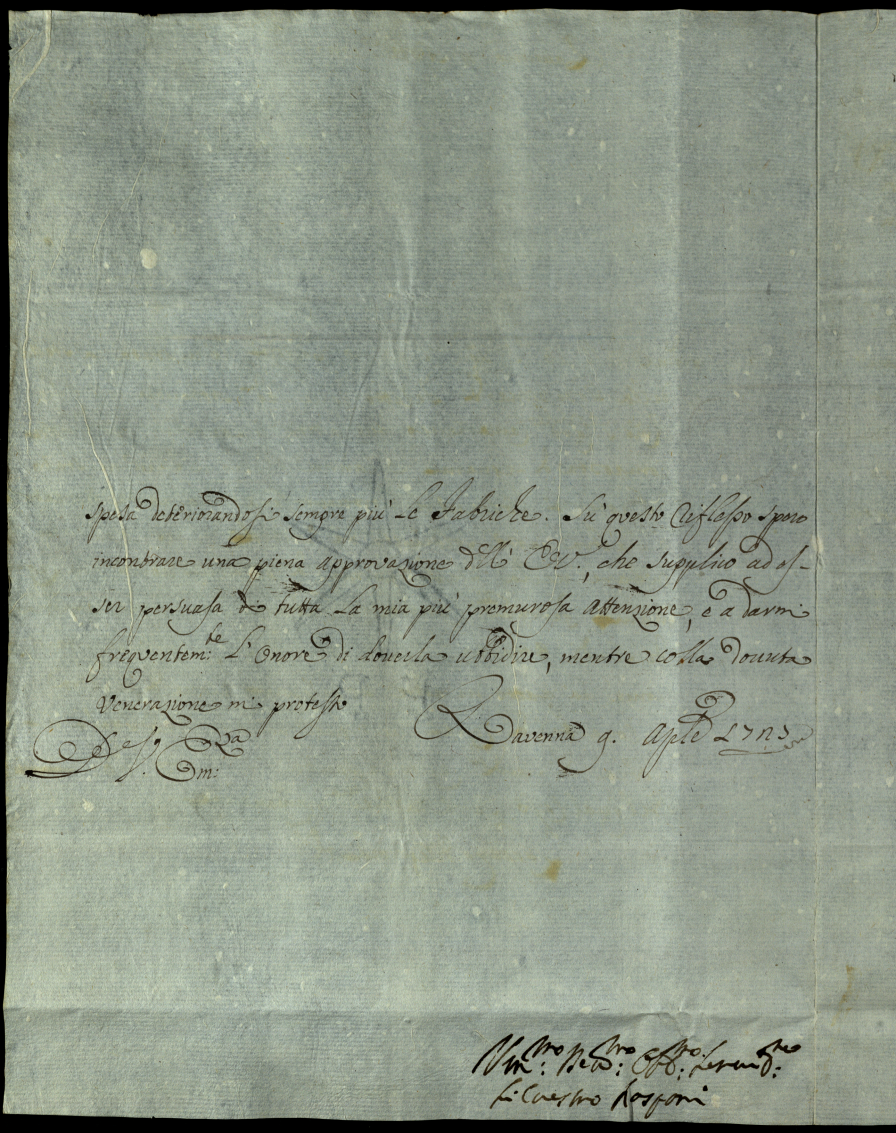 spesa deteriorandosi sempre più le Fabriche. Sù questo riflesso spero
incontrare una piena approvazione dell' E.V., che supplico ad es-
ser persuasa di tutta la mia più premurosa attenzione, e a darmi
frequentem:te l'onore di doverla ubbidire, mentre colla dovuta
venerazione mi protesto
Ravenna 9. Aple
Um:mo Devo:mo Obb:mo Servid:re
Silvestro Rasponi